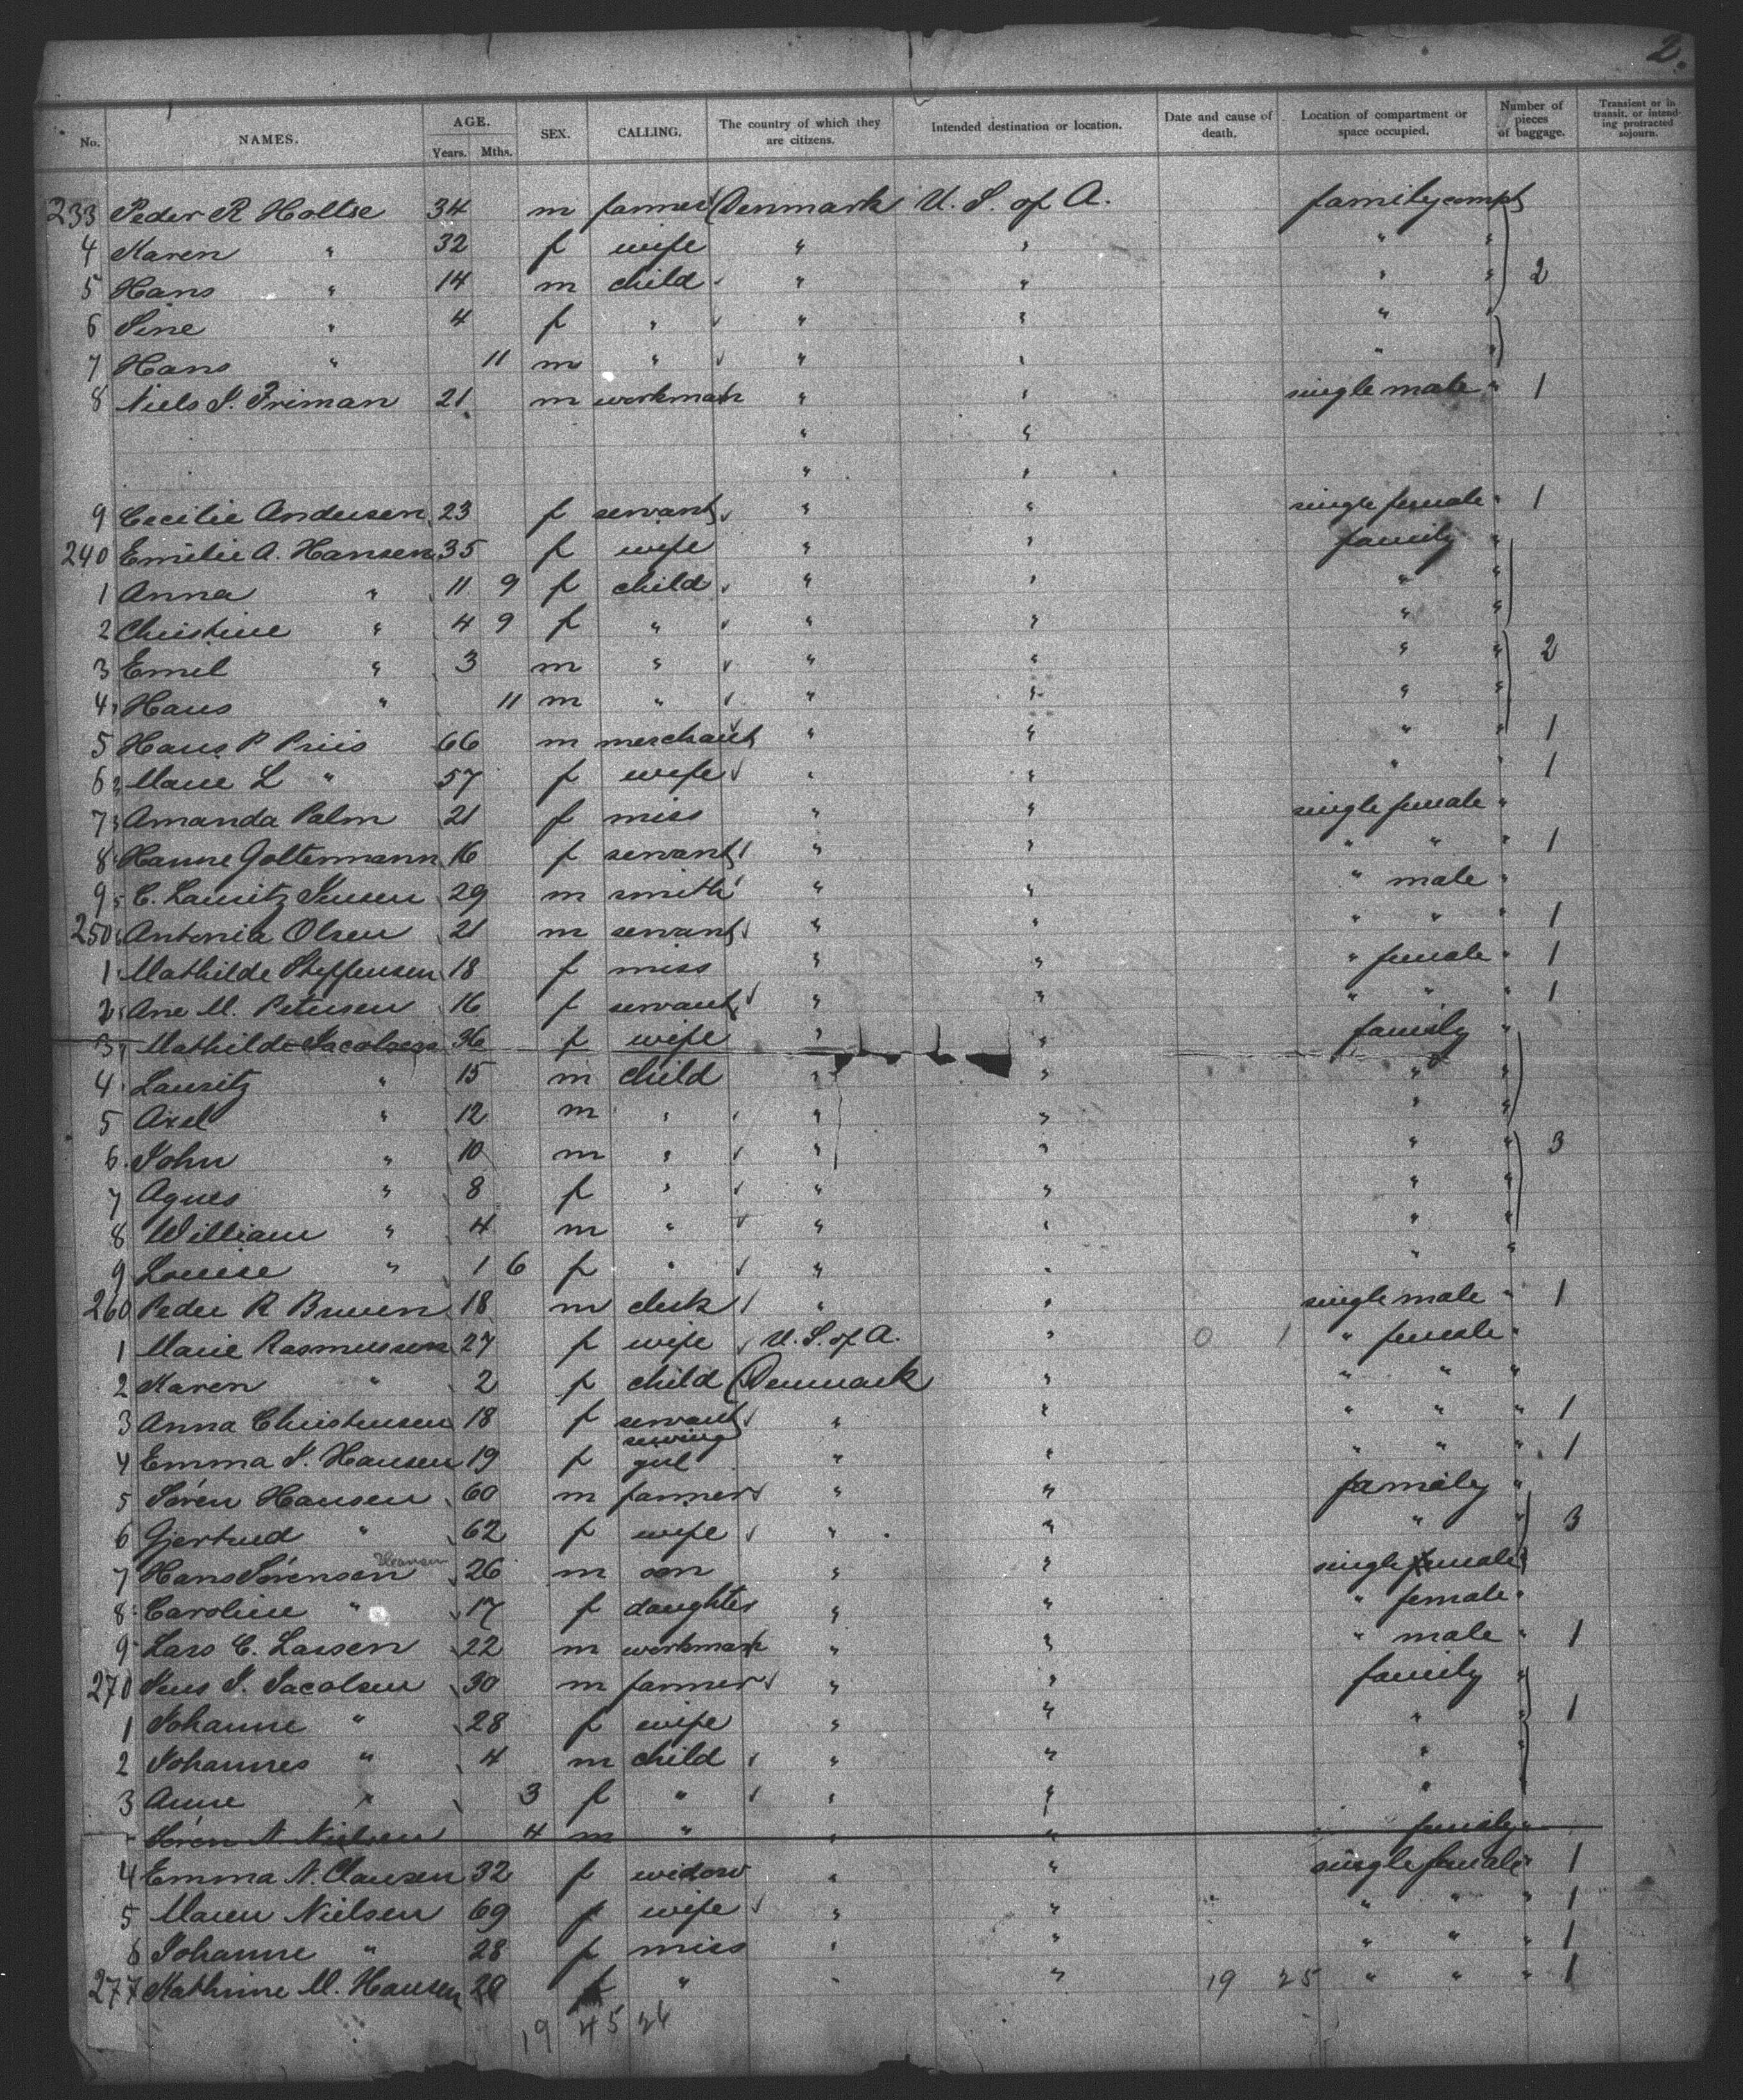 2.
No. NAMES. AGE. Years. Mths. SEX. CALLING. The country of which they are citizens. Intended destination or location. Date and cause of death. Location of compartment or space occupied. Number of pieces of baggage. Transient or in transit, or intending protracted sojourn.
233 Peder R Holtse 34 m farmer Denmark U. S. of A. family compt
4 Karen " 32 f wife " " " "
5 Hans " 14 m child " " " " 2
6 Sine " 4 f " " " " "
7 Hans " 11 m " " " " "
8 Niels S. Friman 21 m workman " " single male " 1
" "
" "
9 Cecilie Andersen 23 f servant " " single female " 1
240 Emilie A. Hansen 35 f wife " " family "
1 Anna " 11 9 f child " " " "
2 Christine " 4 9 f " " " " "
3 Emil " 3 m " " " " " 2
4 Hans " 11 m " " " " "
5 Hans P Priis 66 m merchant " " " " 1
6 Marie L " 57 f wife " " " " 1
7 Amanda Palm 21 f miss " " single female "
8 Hanne Goltermann 16 f servant " " " " " 1
9 C. Lauritz Jensen 29 m smith " " " male "
250 Antonia Olsen 21 m servant " " " " " 1
1 Mathilde Steffensen 18 f miss " " " female " 1
2 Ane M. Petersen 16 f servant " " " " " 1
3 Mathilde Jacobsen 36 f wife " " family "
4 Lauritz " 15 m child " " " "
5 Axel " 12 m " " " " "
6 John " 10 m " " " " " 3
7 Agnes " 8 f " " " " "
8 William " 4 m " " " " "
9 Louise " 1 6 f " " " " "
260 Peder R Bruun 18 m clerk " " single male " 1
1 Marie Rasmussen 27 f wife U. S. of A. " 0 1 " female "
2 Karen " 2 f child Denmark " " " "
3 Anna Christensen 18 f servant " " " " " 1
4 Emma S. Hansen 19 f sewing girl " " " " " 1
5 Sören Hansen 60 m farmer " " family "
6 Gjertrud " 62 f wife " " " " 3
7 Hans Sörensen Hansen 26 m son " " single female
8 Caroline " 17 f daughter " " " female "
9 Lars C. Larsen 22 m workman " " " male " 1
270 Jens S. Jacobsen 30 m farmer " " family "
1 Johanne " 28 f wife " " " " 1
2 Johannes " 4 m child " " " "
3 Anne " 3 f " " " "  "
Sören N. Nielsen 4 m " " " family "
4 Emma N. Clausen 32 f widow " " single female " 1
5 Maren Nielsen 69 f wife " " " " " 1
6 Johanne " 28 f miss " " " " " 1
277 Kathrine M. Hansen 28 f " " " 19 25 " " " 1
19 45 26